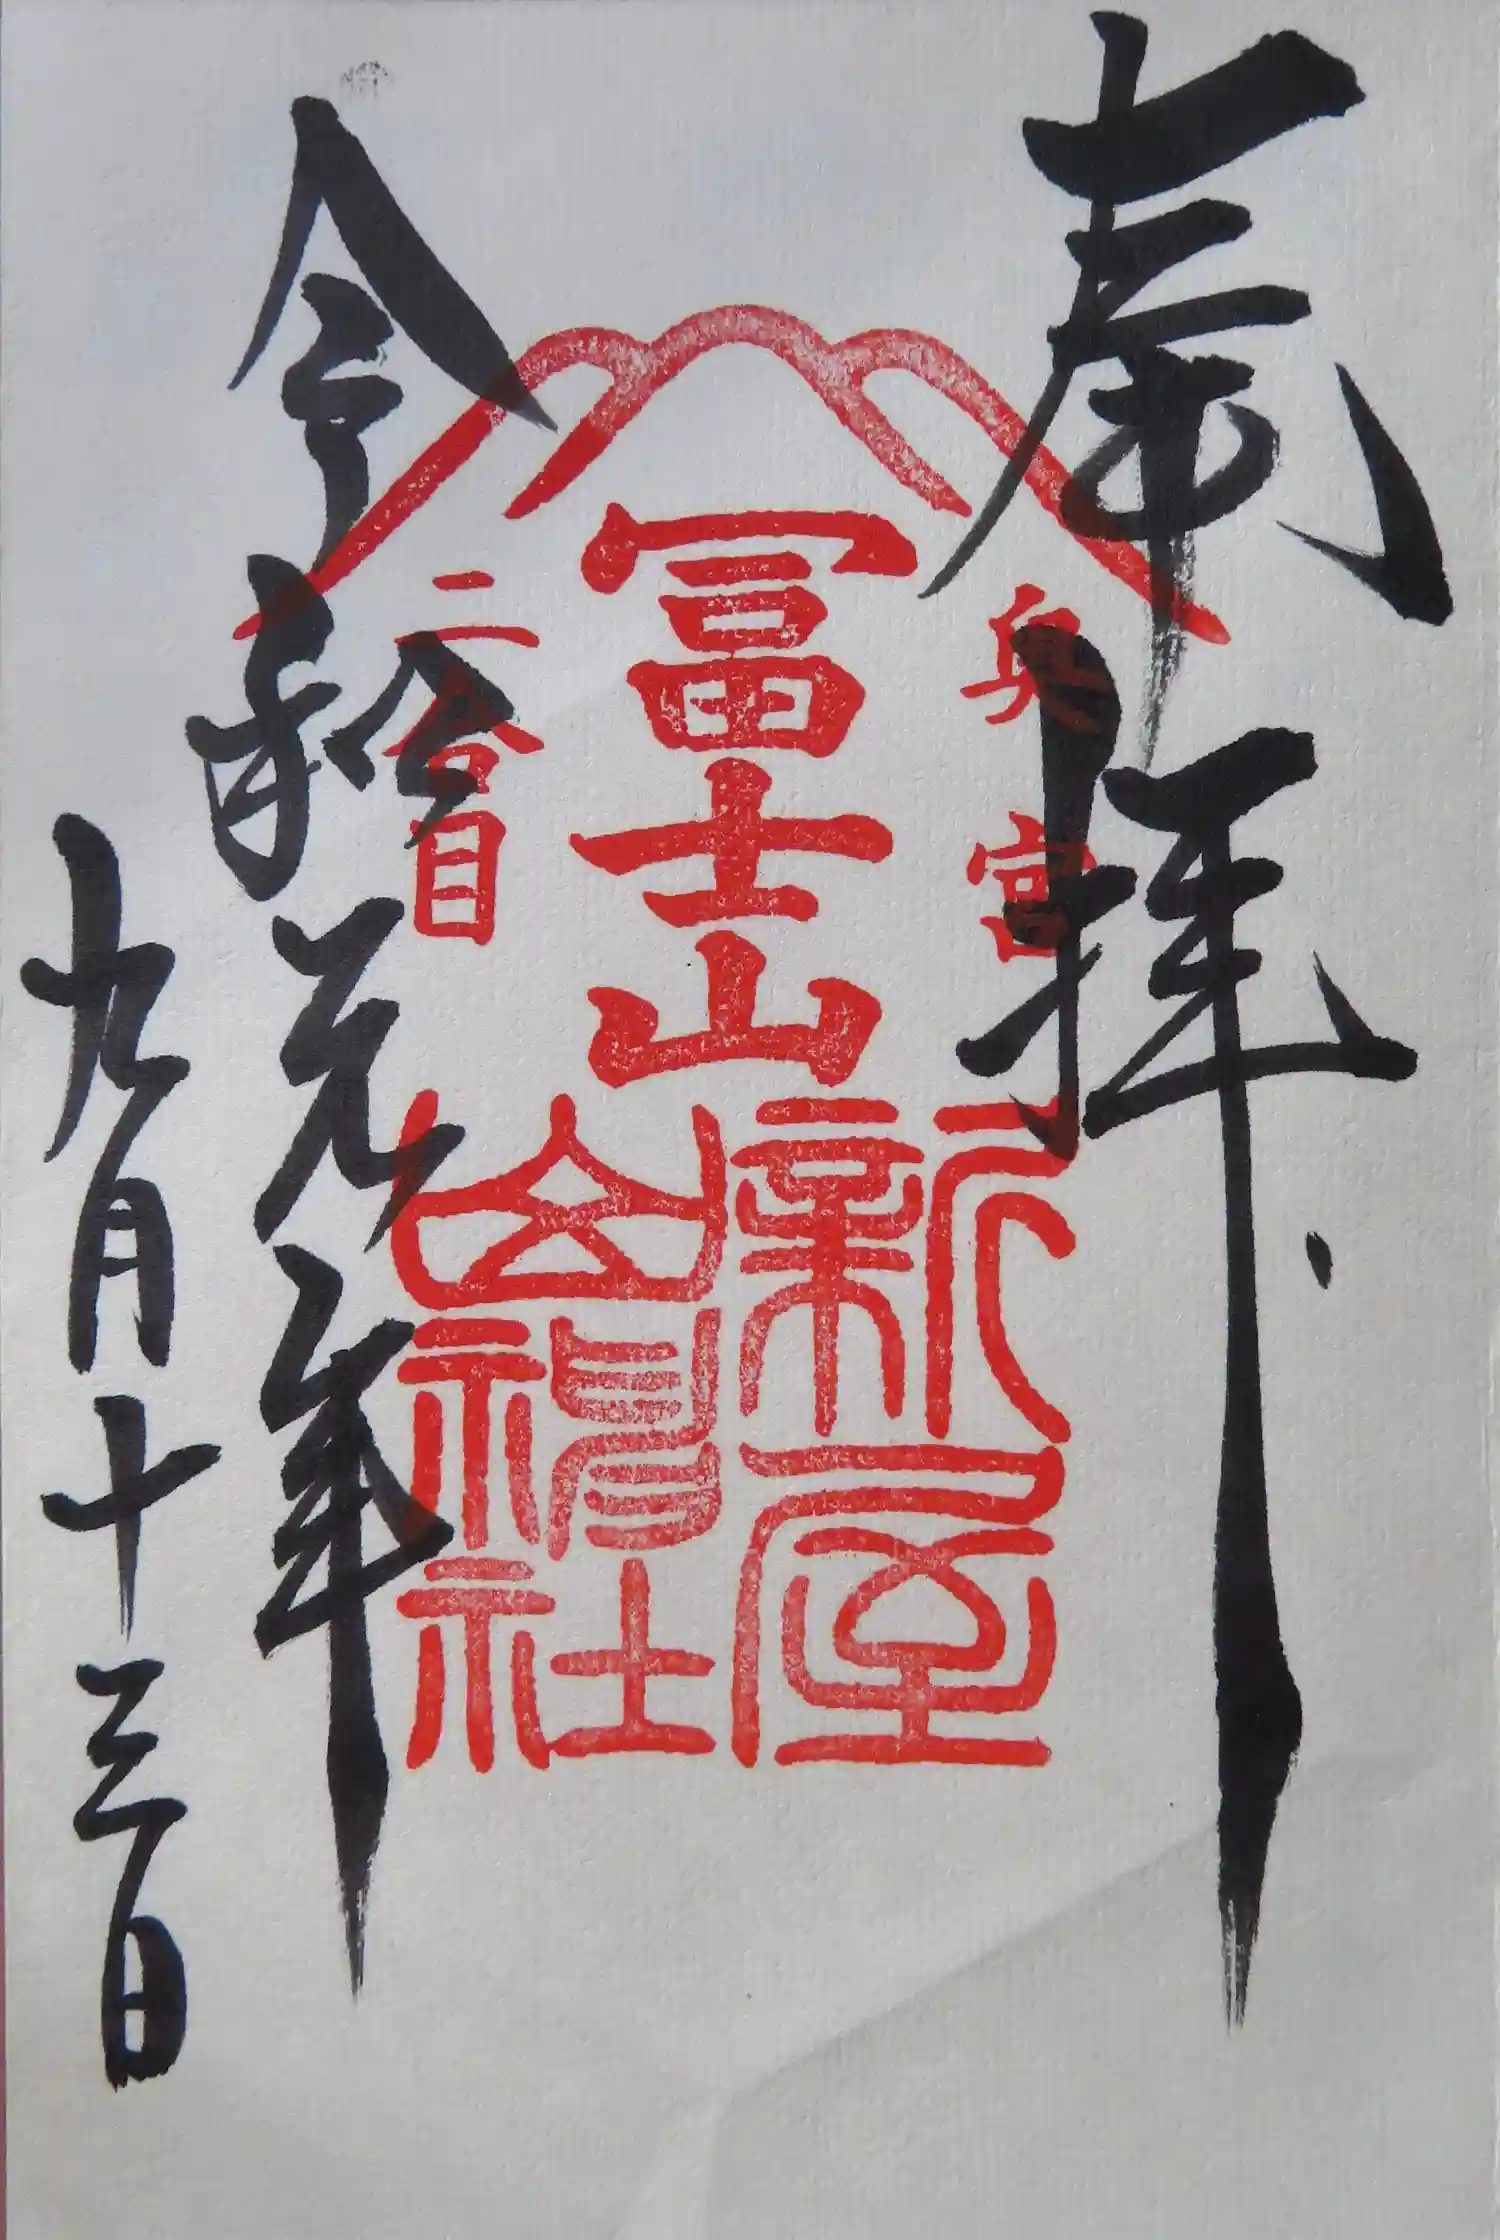 奉拝
奥宮
冨士山
二合目
新屋
山神社
令和元年
九月十三日